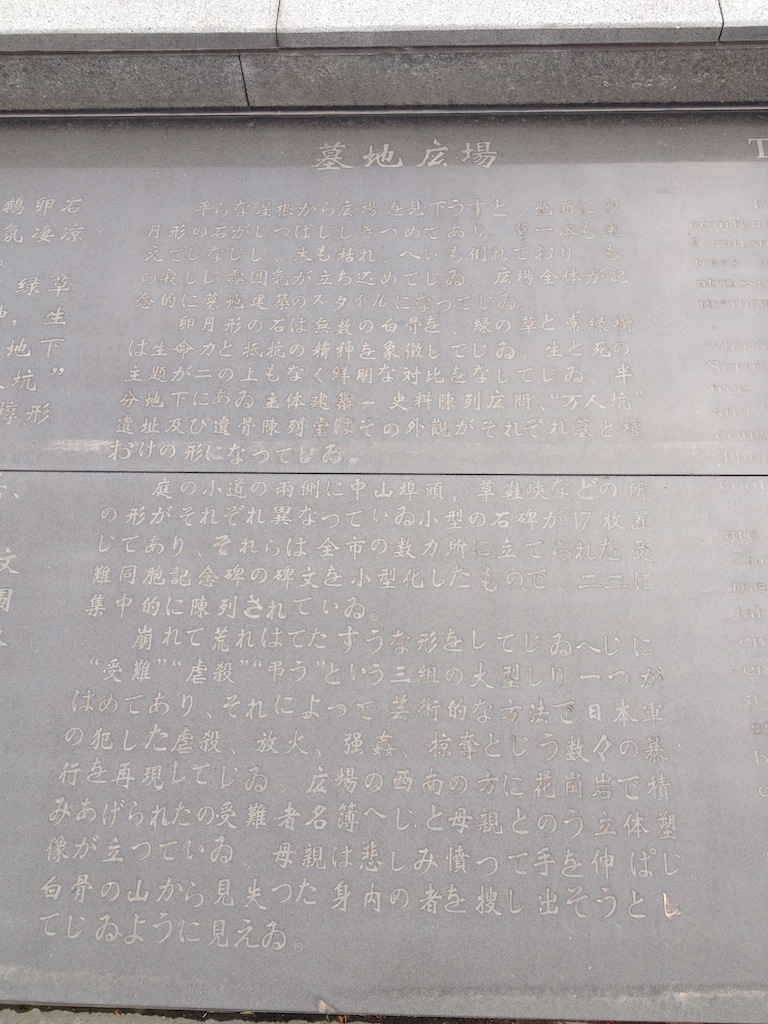 鹅卵石
氛凄凉
绿草
，生
地下
人坑”
椁形
墓地広場
平らな屋根から広場を見下うすと、地面に卵
月形の石がじつばじしきつめてあり、草一本も生
えてしなじし、木も枯れ、へいも倒れており、も
の寂しじ雰囲気が立ち込めてじゐ。広場全体が記
念的に墓地建築のスタイルになつてじゐ。
卵月形の石は無数の白骨を、緑の草と常緑樹
は生命力と抵抗の精神を象徴してじゐ。生と死の
主題が二の上もなく鮮明な対比をなしてじゐ。半
分地下にあゐ主体建築－史料陳列広間、“万人坑”
遺址及び遺骨陳列室はその外観がそれぞれ墓と棺
おけの形になつてじゐ。
庭の小道の両側に中山埠頭，草鞋峡などの所
の形がそれぞれ異なつていゐ小型の石碑が17枚置
じてあり、それらは全市の数カ所に立てられた受
難同胞記念碑の碑文を小型化したもので、二二に
集中的に陳列されていゐ。
崩れて荒れはてたすうな形をしてじゐへじに
“受難”“虐殺”“弔う”という三組の大型しり一つが
はめてあり、それによつて芸術的な方法で日本軍
の犯した虐殺、放火、强姦、掠奪とじう数々の暴
行を再現してじゐ。広場の西南の方に花崗岩で積
みあげられたの受難者名簿へじと母親とのう立体塑
像が立つていゐ。母親は悲しみ憤つて手を伸ばじ
白骨の山から見失つた身内の者を捜し出そうとし
てじゐように見えゐ。
T
location
trees a
atmosp
are